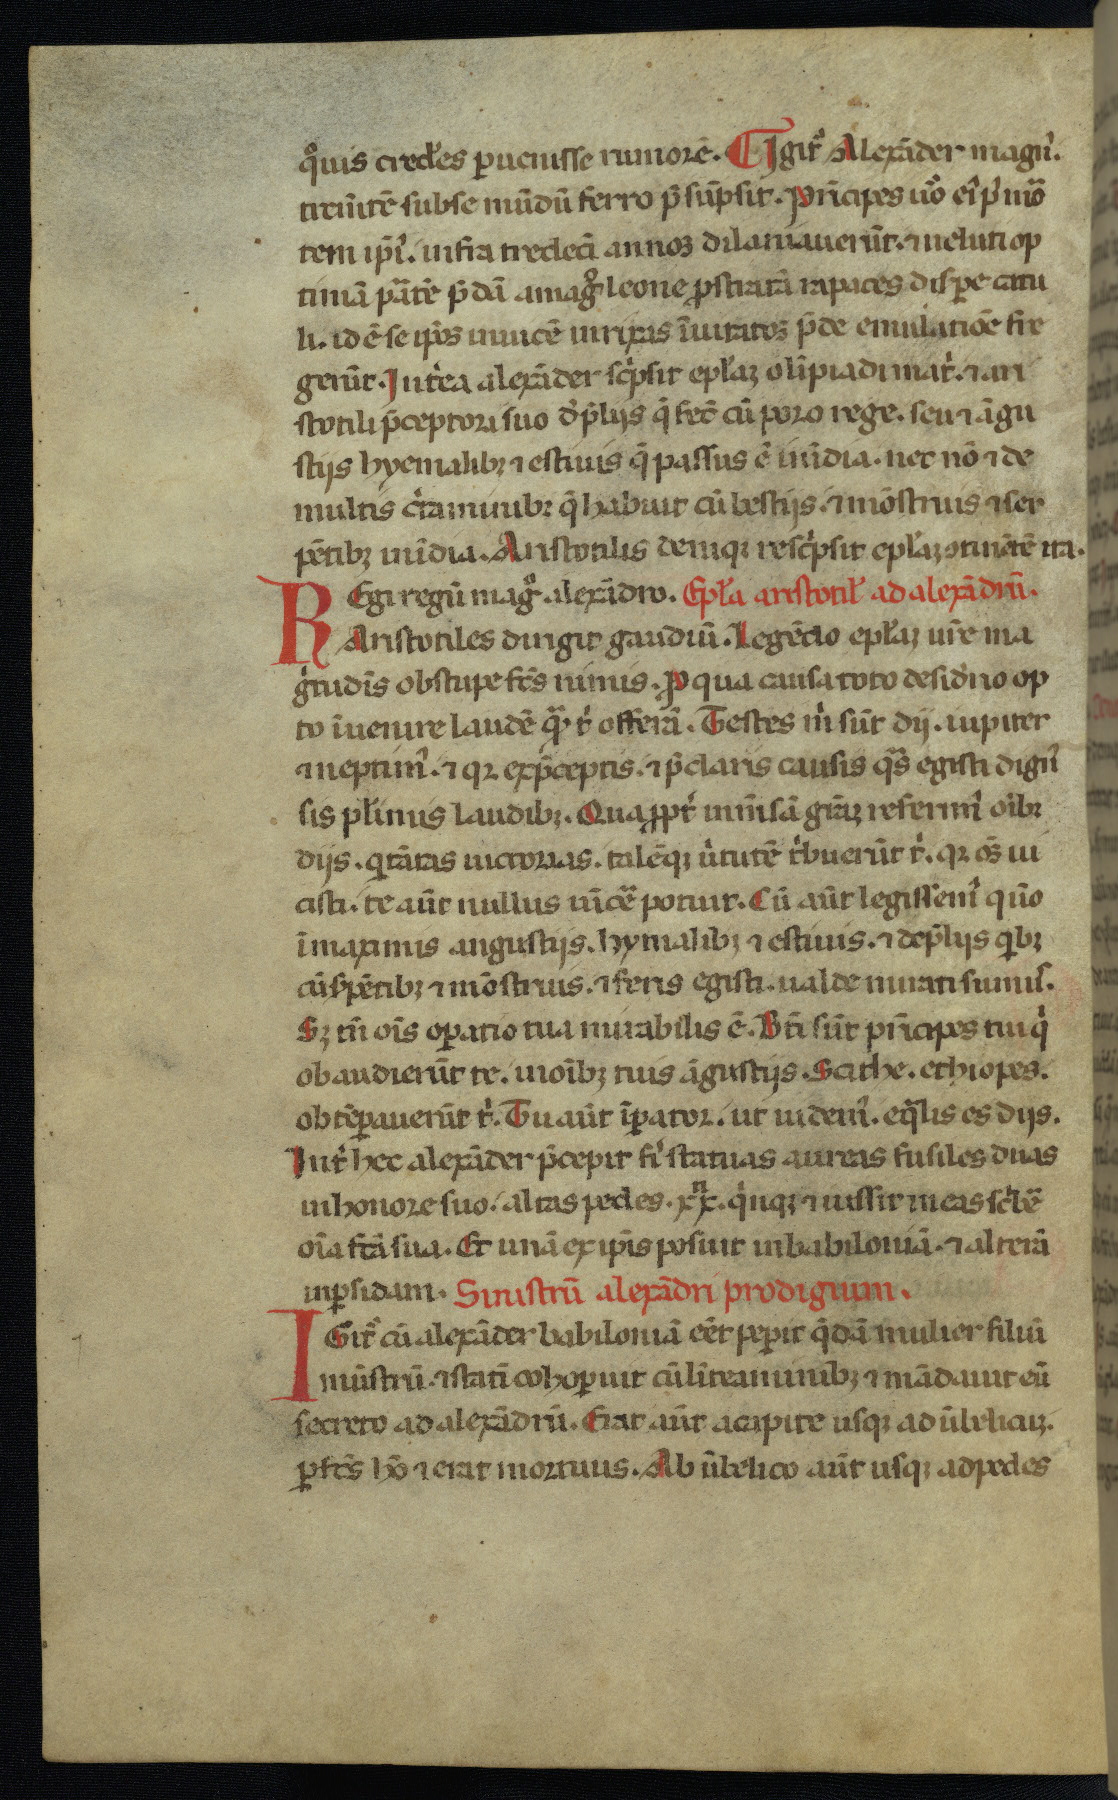 qͦuis credes puenisse rumorē. Igit᷒ Alexāder magn᷒.
tremētē sub se mūdū ferro p̄sūpsit. Prīcipes uͦo ei᷒ p᷒ mo᷒
tem ip̄i᷒. infra tredecī annoꝝ dilaniauerūt. ⁊ ueluti op
timā p̄tē p̄dā a magͦ leone ꝓstratā rapaces disꝑe catu
li. id ē se ip̄os inuicē in rixas īuitatos p̄de emulatiōe fre
gerūt. Int᷒ea alexāder sc͛psit epl̄aꝫ olīpiadi mat͛. ⁊ ari
stotili p̄ceptori suo d᷒ p̄liis q̄ fec̄ cū poro rege. seu ⁊ āgu
stijs hyemalibꝫ ⁊ estiuis q̄ passus ē in īdia. nec nō ⁊ de
multis c͛taminibꝫ q̄ habuit cū bestijs. ⁊ mōstruis ⁊ ser
pētibꝫ in īdia. Aristotilis deniqꝫ resc͛psit epl̄aꝫ ꝯtinētē ita.
REgi regū magͦ alexādro. Epl̄a aristotil̄ ad alexādrū.
Aristotiles dirigit gaudiū. Legēdo epl̄aꝫ ur̄e ma
g᷒tudīs obstupefc̄s nimis. P qua causa toto desid᷒io op
to īuenire laudē q̄ t͛ offerā. Testes m͛ sūt dij. iupiter
⁊ neptun᷒. ⁊ qꝛ ex p̄ceptis. ⁊ p̄claris causis q̄s egisti dign᷒
sis pl̄imis laudibꝫ. Quaꝓpt͛ inmēsā gr̄aꝫ referim᷒ oībꝫ
dijs. q tātas uictorias. talēqꝫ u͛tutē t͛buerūt t͛. qꝛ os̄ ui
cisti. te aūt nullus uīcē potuit. Cū aūt legissem᷒ quō
ī maximis angustijs. hymalibꝫ ⁊ estiuis. ⁊ de p̄liis qͥbꝫ
cū s͛pētibꝫ ⁊ mōstruis. ⁊ feris egisti. ualde mirati sum᷒.
Sꝫ tn̄ oīs oꝑatio tua mirabilis ē. Bt̄i sūt prīcipes tui qͥ
obaudierūt te. in oībꝫ tuis āgustijs. Scithe. ethiopes.
obtēꝑauerūt t͛. Tu aūt īꝑator. ut uidem᷒. eq̄lis es dijs.
Int͛ hec alexāder p̄cepit fi᷒ statuas aureas fusiles duas
in honore suo. altas pedes. xx. qͥnqꝫ ⁊ iussit in eas sc͛bē
oīa fc̄ā sua. Et unā ex ip̄is posuit in babiloniā. ⁊ alterā
in ꝑsidam. Sinistrū alexādri prodigium.
IGit᷒ cū alexāder babiloniā eēt peꝑit q̄dā mulier filiū
mūstrū. ⁊ statī cohoꝑuit cū līteaminibꝫ ⁊ mādauit eū
secreto ad alexādrū. Erat aūt a capite usqꝫ ad ūbelicuꝫ.
ꝑfc̄s hō ⁊ erat mortuus. Ab ūbelico aūt usqꝫ ad pedes